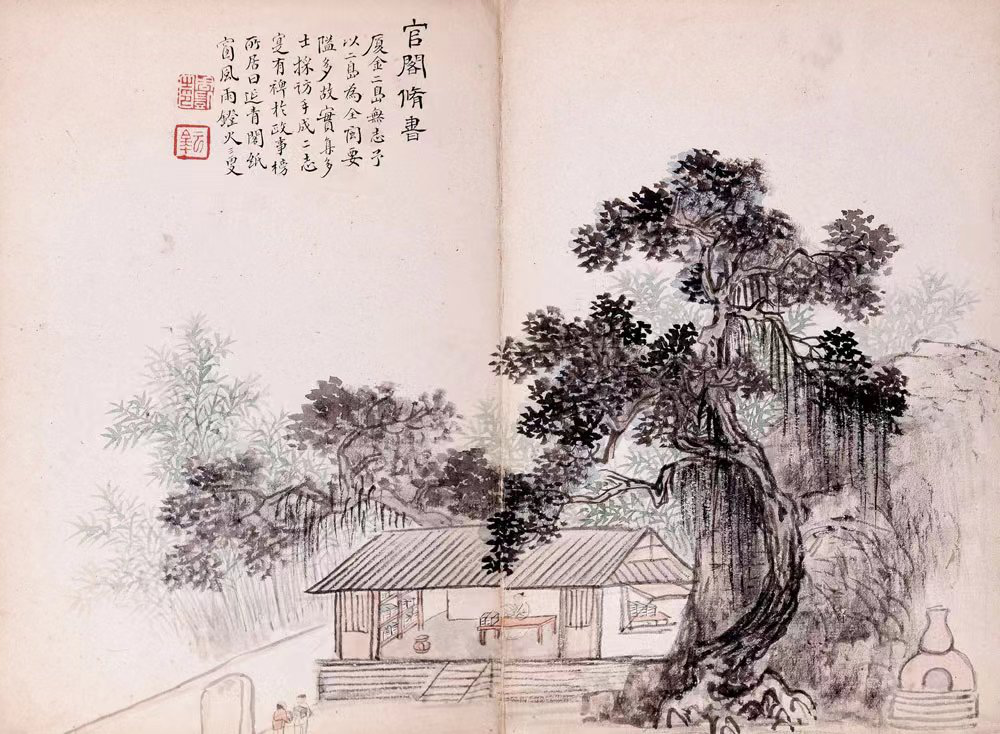 官閣脩書
厦金二島無志予
以二島為全閩要
隘多故實集多
士採訪手成二志
寔有裨於政事榜
所居曰延青閣紙
窗風雨鐙火三更